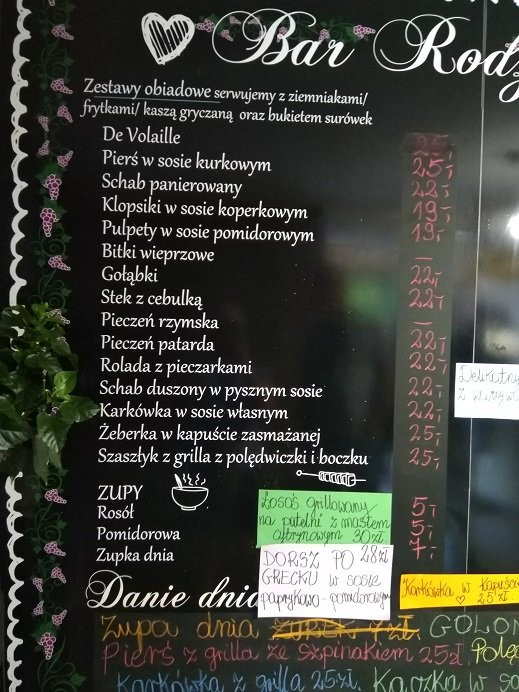 Bar Rodz
Zestawy obiadowe serwujemy z ziemniakami/
frytkami/ kaszą gryczaną oraz bukietem surówek
De Volaille 25,-
Pierś w sosie kurkowym 25,-
Schab panierowany 22,-
Klopsiki w sosie koperkowym 19,-
Pulpety w sosie pomidorowym 19,-
Bitki wieprzowe –
Gołąbki 22,-
Stek z cebulką 22,-
Pieczeń rzymska –
Pieczeń patarda 22,-
Rolada z pieczarkami 22,-
Schab duszony w pysznym sosie 22,-
Karkówka w sosie własnym 22,-
Żeberka w kapuście zasmażanej 25,-
Szaszłyk z grilla z polędwiczki i boczku 25,-
Delikatny
z warzyw
ZUPY
Rosół 5,-
Pomidorowa 5,-
Zupka dnia 7,-
Łosoś grillowany
na patelni z masłem
cytrynowym 30zł
DORSZ PO 28zł
GRECKU w sosie
paprykowo-pomidorowym
Karkówka w kapuście
25zł
Danie dnia
Zupa dnia ŻUREK 7zł GOLON
Pierś z grilla ze szpinakiem 25zł Polęd
Karkówka z grilla 25zł. Kaczka w so